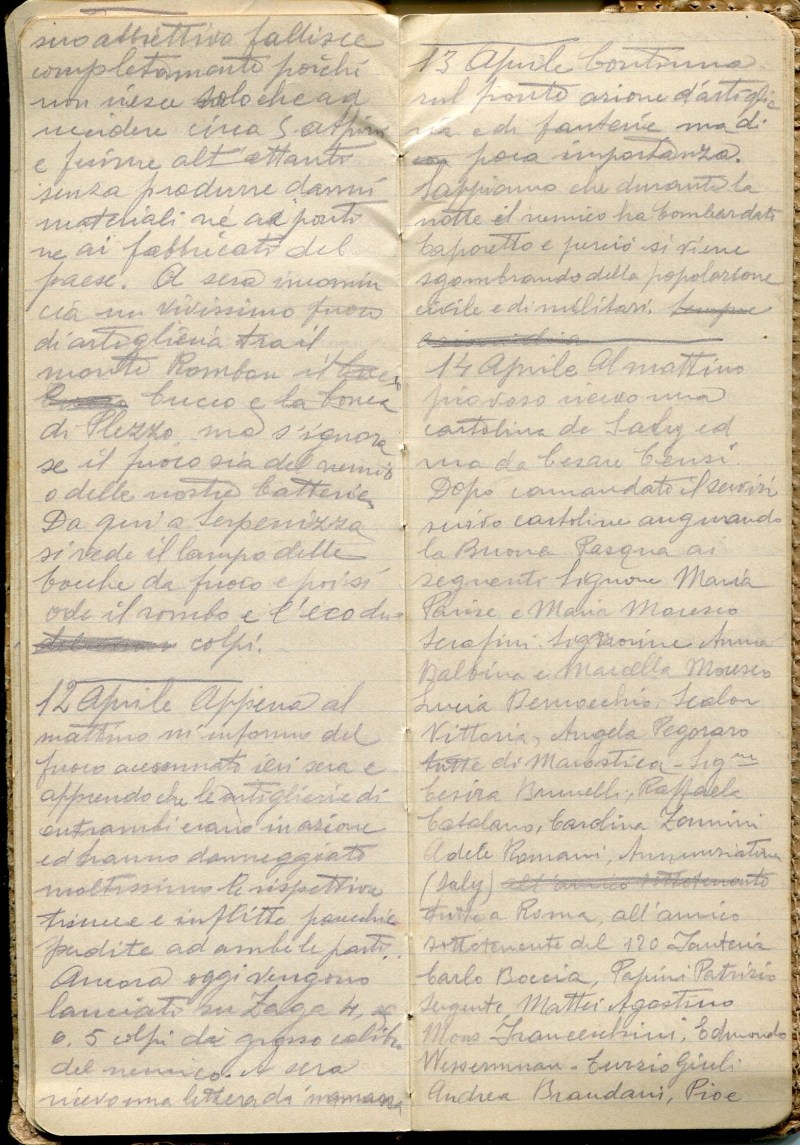 suo obbiettivo fallisce
completamente poichè
non riesce solo che ad
uccidere circa 5 alpini
e ferirne alt'ettanti
senza produrre danni
materiali né ai ponti
ne ai fabbricati del
paese. A sera incomin
cia un vivissimo fuoco
di artiglieria tra il
monte Rombon il
Cucco e la conca
di Plezzo, ma s'ignora
se il fuoco sia del nemico
o delle nostre batterie,
Da qui a Serpenizza
si vede il lampo delle
bocche da fuoco e poi si
ode il rombo e l'eco dei
colpi.
12 Aprile Appena al
mattino m'informo del
fuoco accennato ieri sera e
apprendo che le artiglierie di
entrambi erano in azione
ed hanno danneggiato
moltissimo le rispettive
trincee e inflitte parecchie
perdite ad ambe le parti.
Ancora oggi vengono
lanciati su Zaga 4,
o 5 colpi di grosso calibro
del nemico. A sera
ricevo una lettera di mamma
13 Aprile Continua
sul fronte azione d'artiglie
ria e di fanterie ma di
poca importanza.
Sappiamo che durante la
notte il nemico ha bombardato
Caporetto e perciò si viene
sgombrando della popolazione
civile e di militari. Sempre
14 Aprile Al mattino
piovoso ricevo una
cartolina da Saly ed
una da Cesare Censi.
Dopo comandato il servizi
scrivo cartoline augurando
la Buona Pasqua ai
seguenti Signore Maria
Parise e Maria Moresco
Serafini. Signorine Anna
Balbina e Marcella Moresco
Lucia Bernocchio, Scalor
Vittoria, Angela Pegoraro
tutte di Marostica - Sig.ne
Cesira Brunelli, Raffaela
Catalano, Carolina Zannini
Adele Romani, Annunziatina
(Saly) all'amico sottotenente
tutte a Roma, all'amico
sottotenente del 120 Fanteria
Carlo Boccia, Papini Patrizio
Sergente Mattei Agostino
Mons Franceschini, Edmondo
Wesserman - Curzio Giuli
Andrea Brandani, Pioe